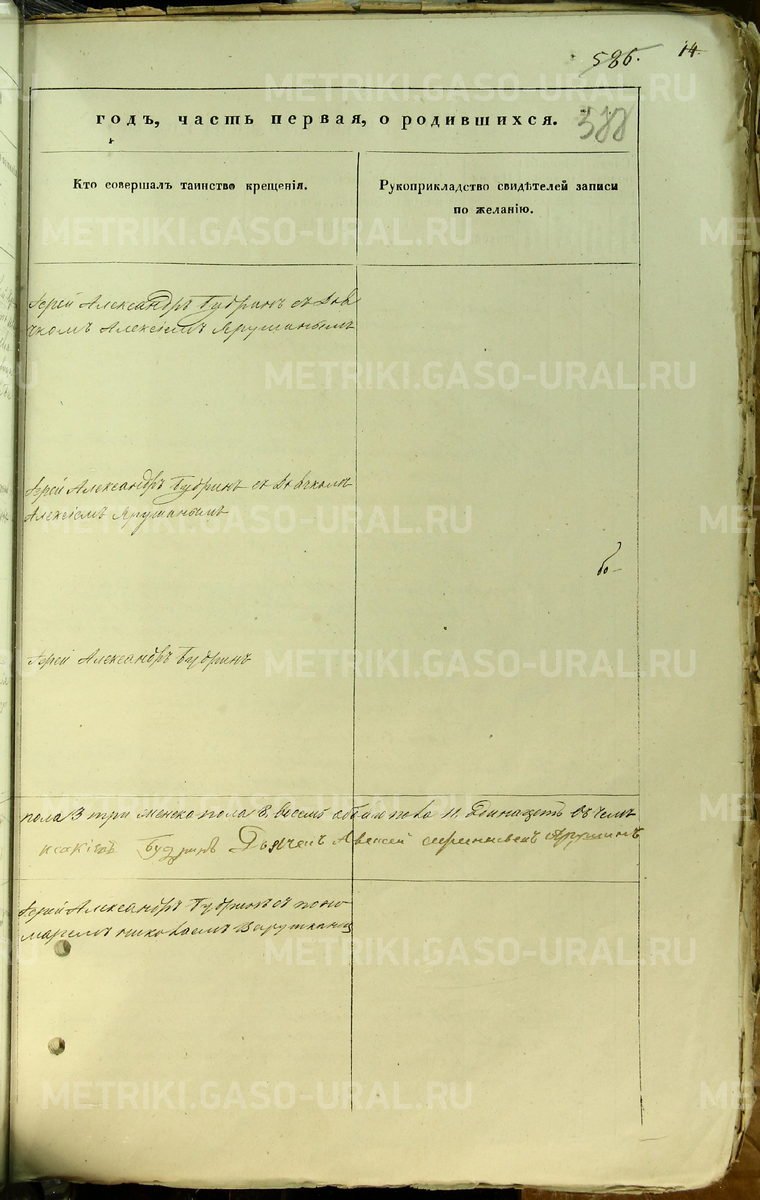 586. 14.
годъ, часть первая, о родившихся. 388
Кто совершалъ таинство крещенія.
Рукоприкладство свидѣтелей записи
по желанію.
METRIKI.GASO-URAL.RU
Іерей Александръ Будринъ съ Дья
чкомъ Алексіемъ Ярушинымъ
Іерей Александръ Будринъ съ Дьячкомъ
Алексіемъ Ярушинымъ
Іерей Александръ Будринъ
пола 3 три женска пола 8, восемь обоего пола 11. Одинацеть въ чемъ
Будринъ Дьячекъ Алексей Ярушинъ
Іерей Александръ Будринъ съ поно
маремъ Николаемъ